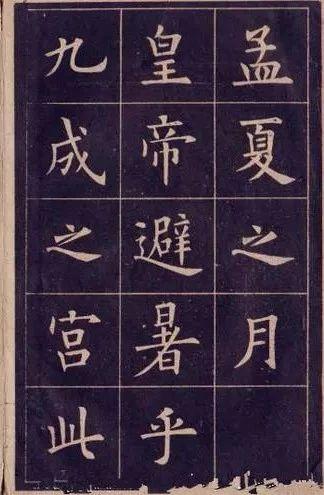 孟夏之月
皇帝避暑乎
九成之宫此